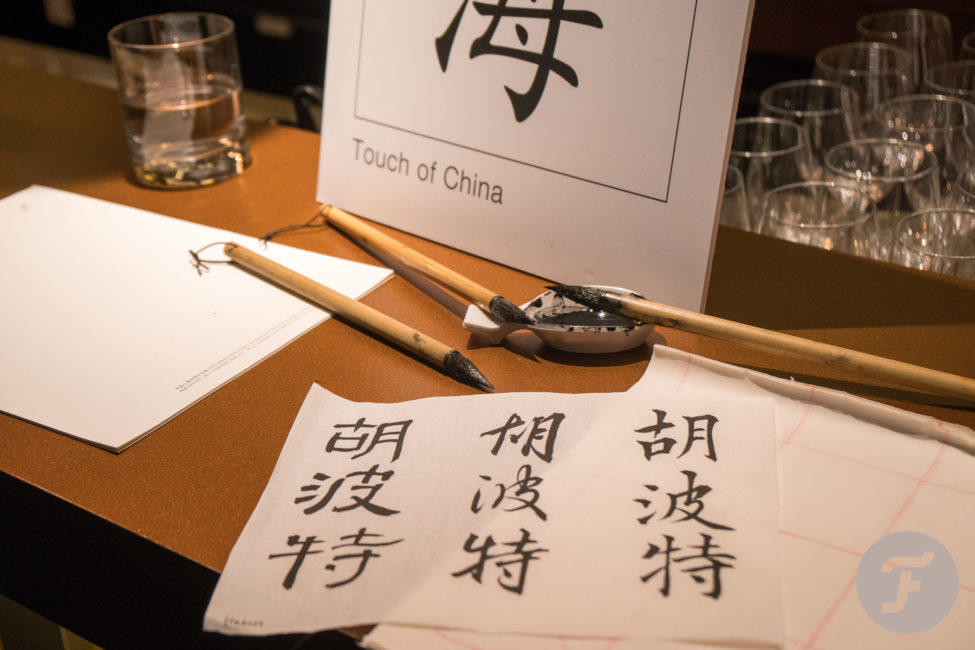 海
Touch of China
胡波特
胡波特
胡波特
F